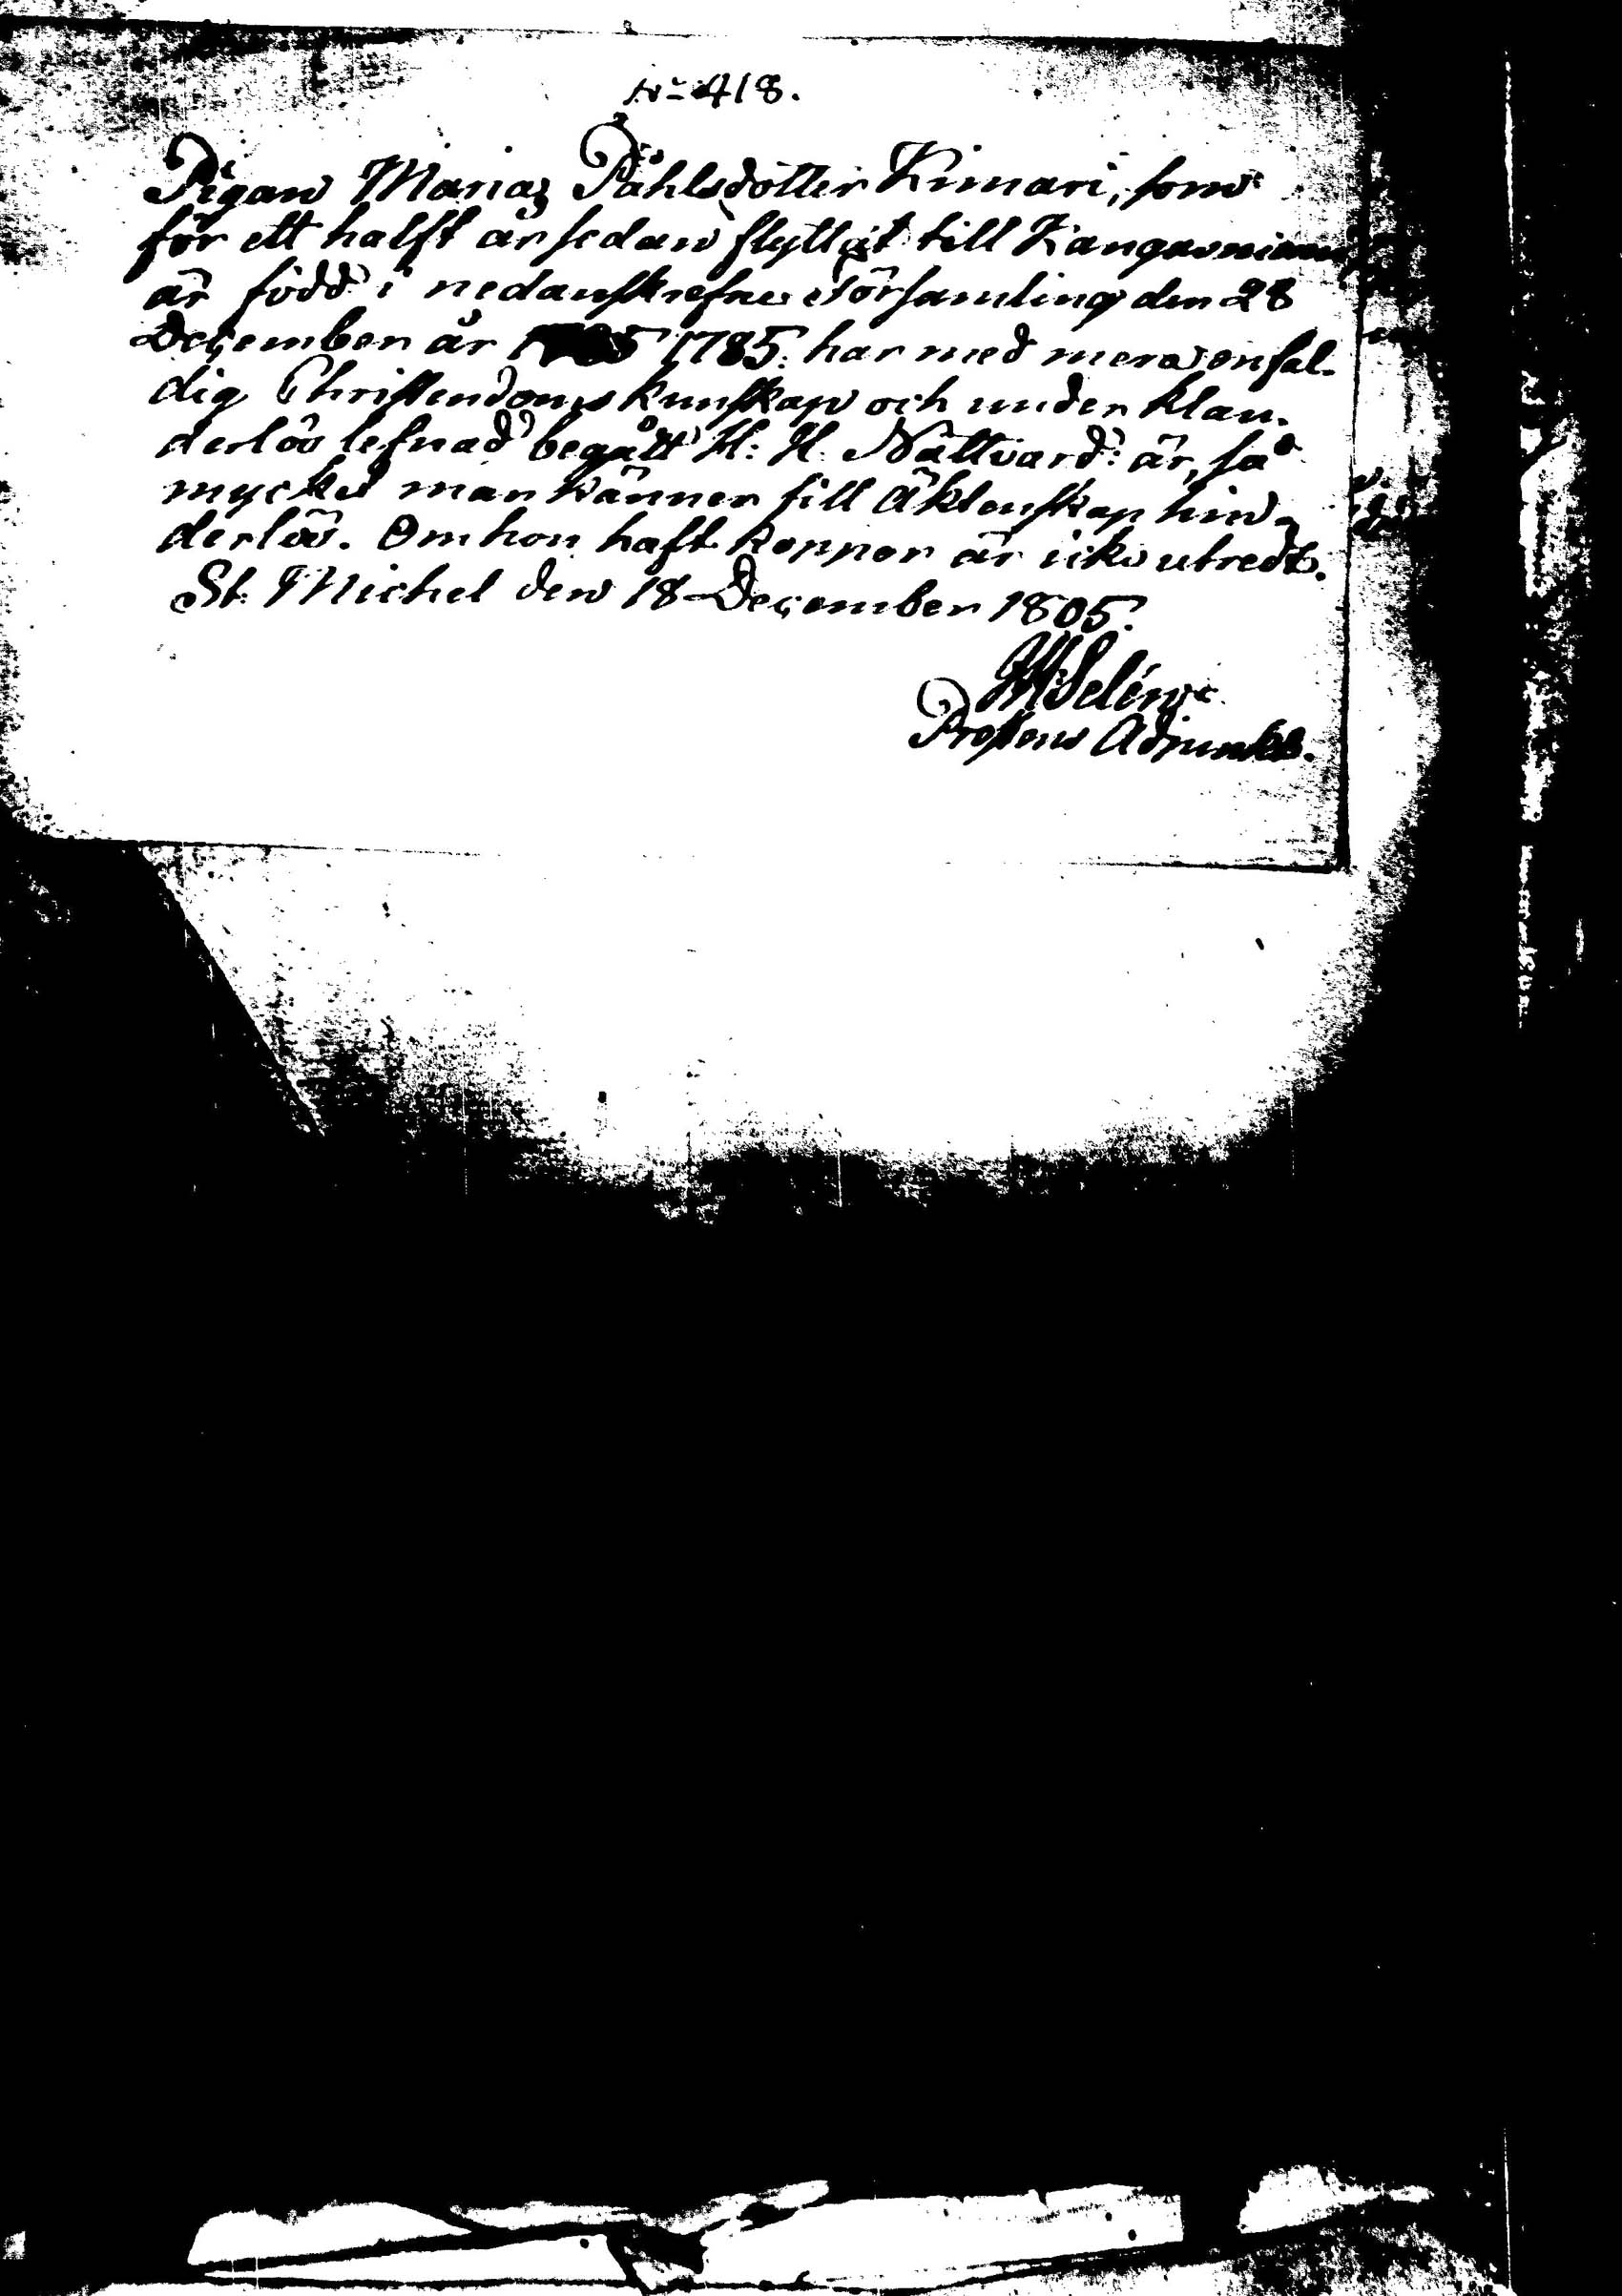 No 418.
Pigan Maria Påhlsdotter Kinnari, som
för ett halft år sedan flyttat till Kangasniemi
är född i nedanskrefne Församling den 28
December år 1785. har med mera enfal-
dig Christendoms kunskap och under klan-
derlös lefnad begått H: H. Nattvard: är, så
mycket man känner till Äktenskap hin-
derlös. Om hon haft koppor är icke utredt.
St. Michel den 18 December 1805.
Selén
Prostens Adjunkt.